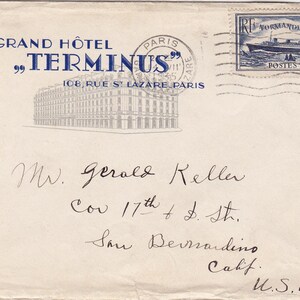 GRAND HÔTEL
„TERMINUS”
108, RUE ST LAZARE, PARIS
PARIS
NORMANDIE
POSTES
Mr. Gerald Keller
Cor 17th & D. St.
San Bernardino
Calif.
U.S.